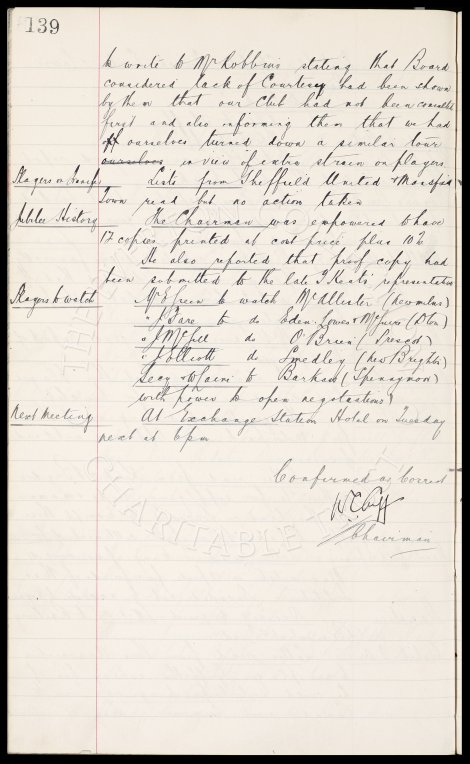 139
to write to Mr Robbins stating that Board
considered lack of Courtesy had been shown
by them that our Club had not been consulted
first and also informing them that we had
ourselves turned down a similar tour
ourselves in view of extra strain on players
Players on Transfer Lists from Sheffield United & Mansfield
Town read but no action taken
Jubilee History The Chairman was empowered to have
copies printed at cost price plus 10%
He also reported that proof copy had
been submitted to the late T Keats representative
Players to watch Mr E Green to watch McAllister
" J Bare to do Eden Lowes &
" do O'Brien
" do Smedley (New Brighton)
Secy & to Barkas (Spennymoor)
with power to open negotiations)
Next Meeting At Exchange Station Hotel on Tuesday
next at 6pm
Confirmed as Correct
W.C. Cuff
Chairman
CHARITABLE